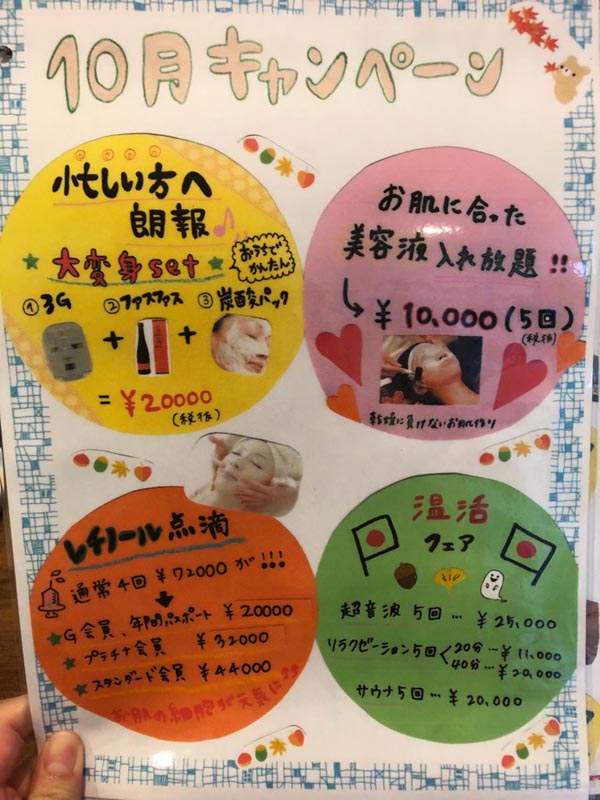 10月キャンペーン
忙しい方へ
朗報♪
★大変身set★
おうちで
かんたん
①3G ②ファスファス ③炭酸パック
+ +
=¥20000
(税抜)
お肌に合った
美容液入れ放題!!
↳¥10,000(5回)
(税抜)
乾燥に負けないお肌作り
レチノール点滴
通常4回 ¥72000が!!!
★G会員、年間パスポート ¥20000
★プラチナ会員 ¥32000
★スタンダード会員 ¥44000
お肌の細胞が元気に
温活
フェア
超音波 5回… ¥25,000
リラクゼーション5回<20分…¥11,000
40分…¥20,000
サウナ5回…¥20,000